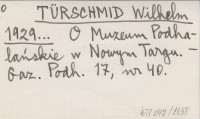 TÜRSCHMID Wilhelm
1929... O Muzeum Podha-
lańskie w Nowym Targu. -
Gaz. Podh. 17, nr 40.